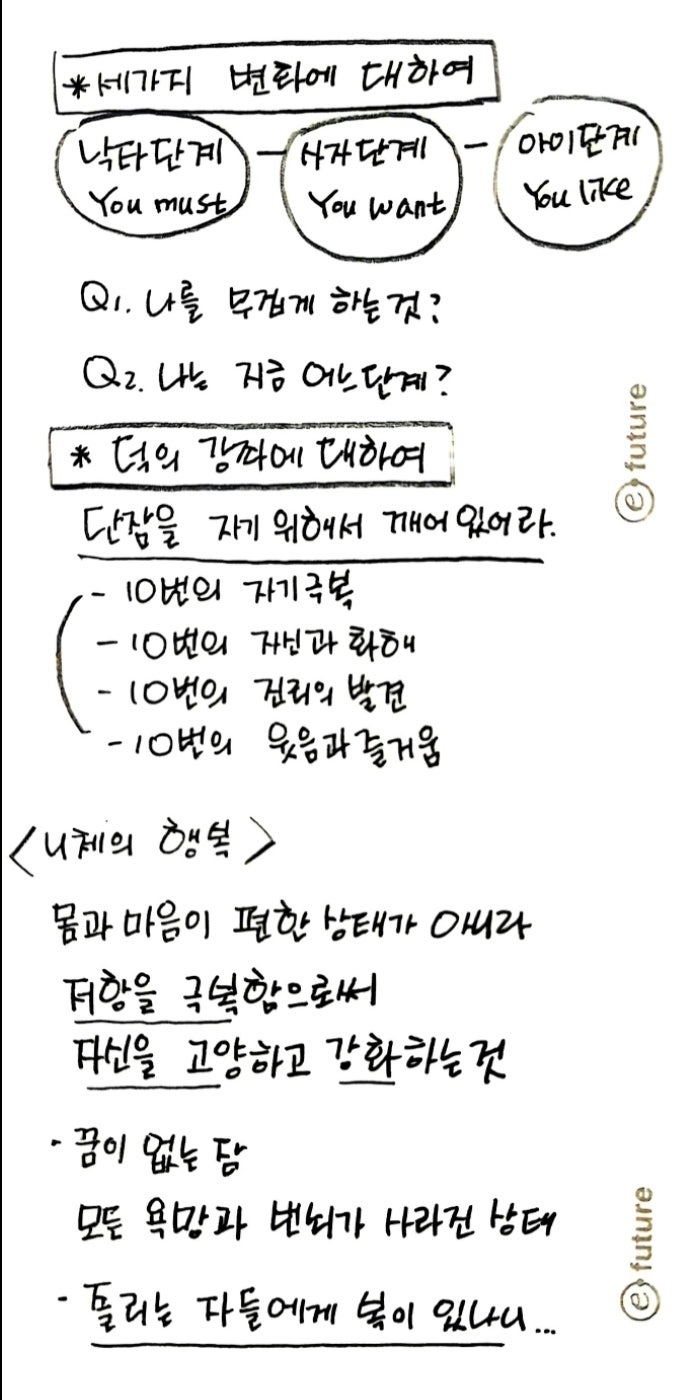 *세가지 변화에 대하여
낙타단계 - 사자단계 - 아이단계
You must You want You like
Q1. 나를 무겁게 하는것?
Q2. 나는 지금 어느단계?
* 덕의 강좌에 대하여
단잠을 자기 위해서 깨어있어라.
- 10번의 자기극복
- 10번의 자신과 화해
- 10번의 진리의 발견
- 10번의 웃음과 즐거움
<니체의 행복>
몸과 마음이 편한 상태가 아니라
저항을 극복함으로써
자신을 고양하고 강화하는것
· 꿈이 없는 잠
모든 욕망과 번뇌가 사라진 상태
· 졸리는 자들에게 복이 있나니...
e future
e future